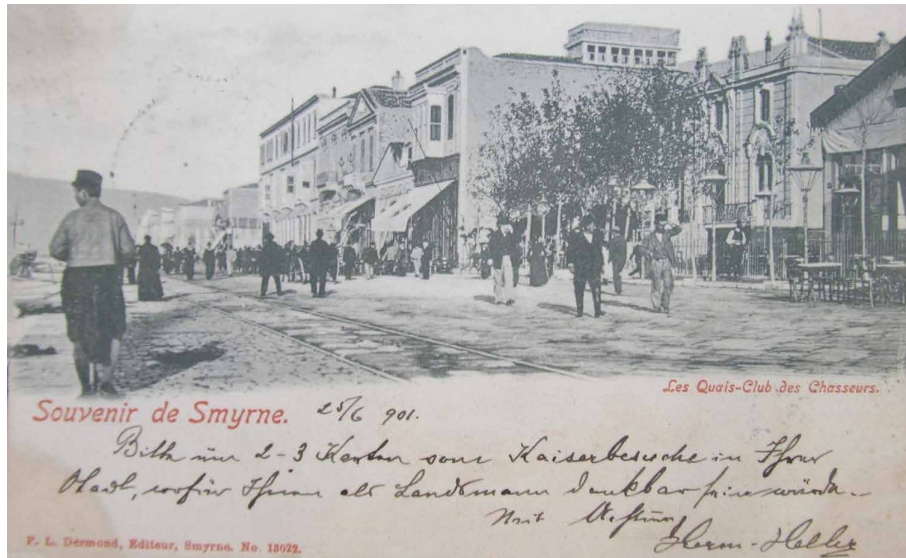 Les Quais-Club des Chasseurs.
Souvenir de Smyrne. 25/6 901.
Bitte um 2-3 Karten vom Kaiserbesuche in Ihrer
Stadt, wofür Ihnen als Landsmann dankbar sein würde.-
Mit
Herm. Heller
F. L. Dermond, Editeur, Smyrne. No. 13022.